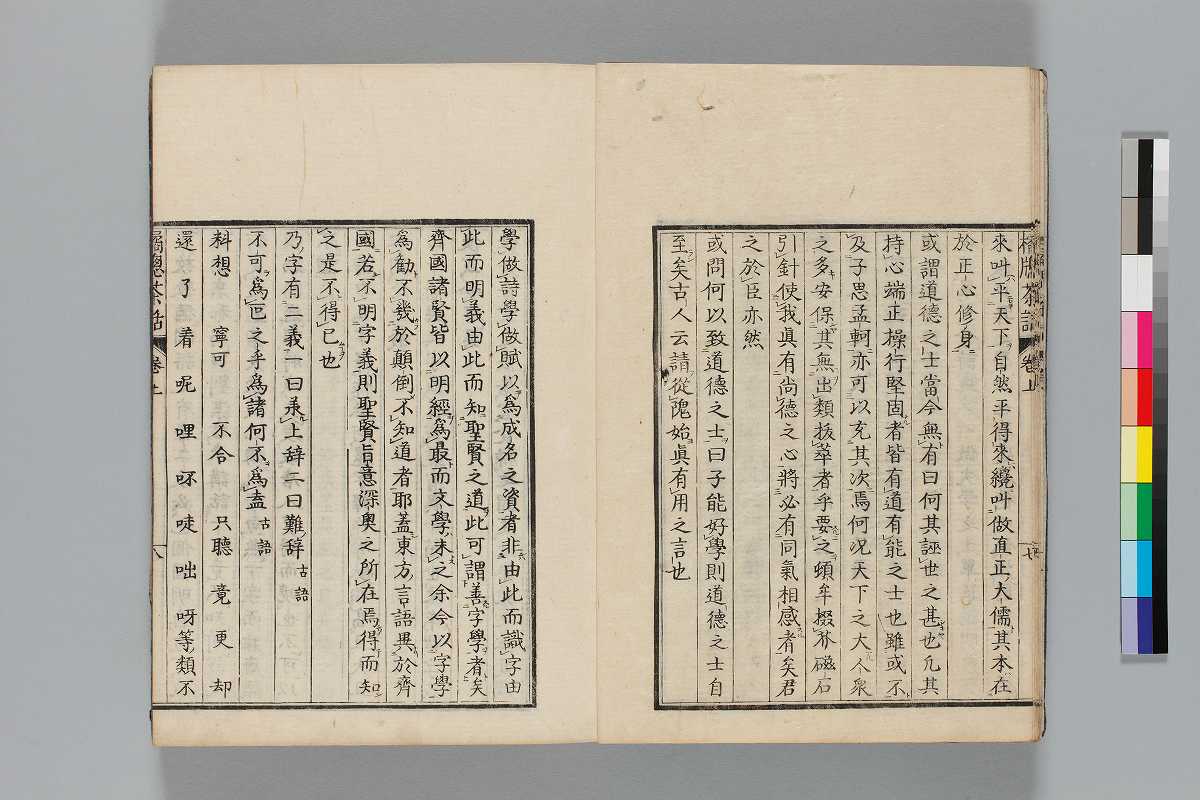 來叫平天下自然平得來纔叫做直正大儒其本在
於正心修身
或謂道德之士當今無有曰何其誣世之甚也凢其
持心端正操行堅固者皆有道有能之士也雖或不
及子思孟軻亦可以充其次焉何况天下之大人衆
之多安保其無出類拔萃者乎要之頓牟掇芥磁石
引針使我眞有尚德之心將必有同氣相感者矣君
之於臣亦然
或問何以致道德之士曰子能好學則道德之士自
至矣古人云請從隗始眞有用之言也
七
學做詩學做賦以爲成名之資者非由此而識字由
此而明義由此而知聖賢之道此可謂善字學者矣
齊國諸賢皆以明經爲最而文學末之余今以字學
爲勸不幾於顛倒不知道者耶蓋東方言語異於齊
國若不明字義則聖賢旨意深奧之所在焉得而知
之是不得已也
乃字有二義一曰承上辞二曰難辞古語
不可爲叵之乎爲諸何不爲盍古語
料想 寧可 不合 只聽 竟 更 却
還 了 着 呢 哩 咱 呀等類不
橘窻茶話 卷上 八